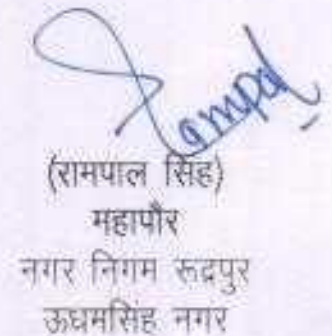 Rampal
(रामपाल सिंह)
महापौर
नगर निगम रूद्रपुर
ऊधमसिंह नगर